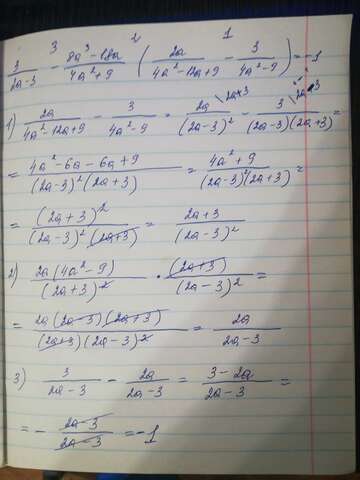 3 2 1
3/(2a-3) - (8a³-18a)/(4a²+9) (2a/(4a²-12a+9) - 3/(4a²-9)) = -1
1) 2a/(4a²-12a+9) - 3/(4a²-9) = 2a\2a+3/(2a-3)² - 3\2a-3/(2a-3)(2a+3) =
= (4a²-6a-6a+9)/((2a-3)²(2a+3)) = (4a²+9)/((2a-3)²(2a+3)) =
= (2a+3)²/((2a-3)²(2a+3)) = (2a+3)/(2a-3)²
2) 2a(4a²-9)/(2a+3)² · (2a+3)/(2a-3)² =
= 2a(2a-3)(2a+3)/((2a+3)(2a-3)²) = 2a/(2a-3)
3) 3/(2a-3) - 2a/(2a-3) = (3-2a)/(2a-3) =
= - (2a-3)/(2a-3) = -1